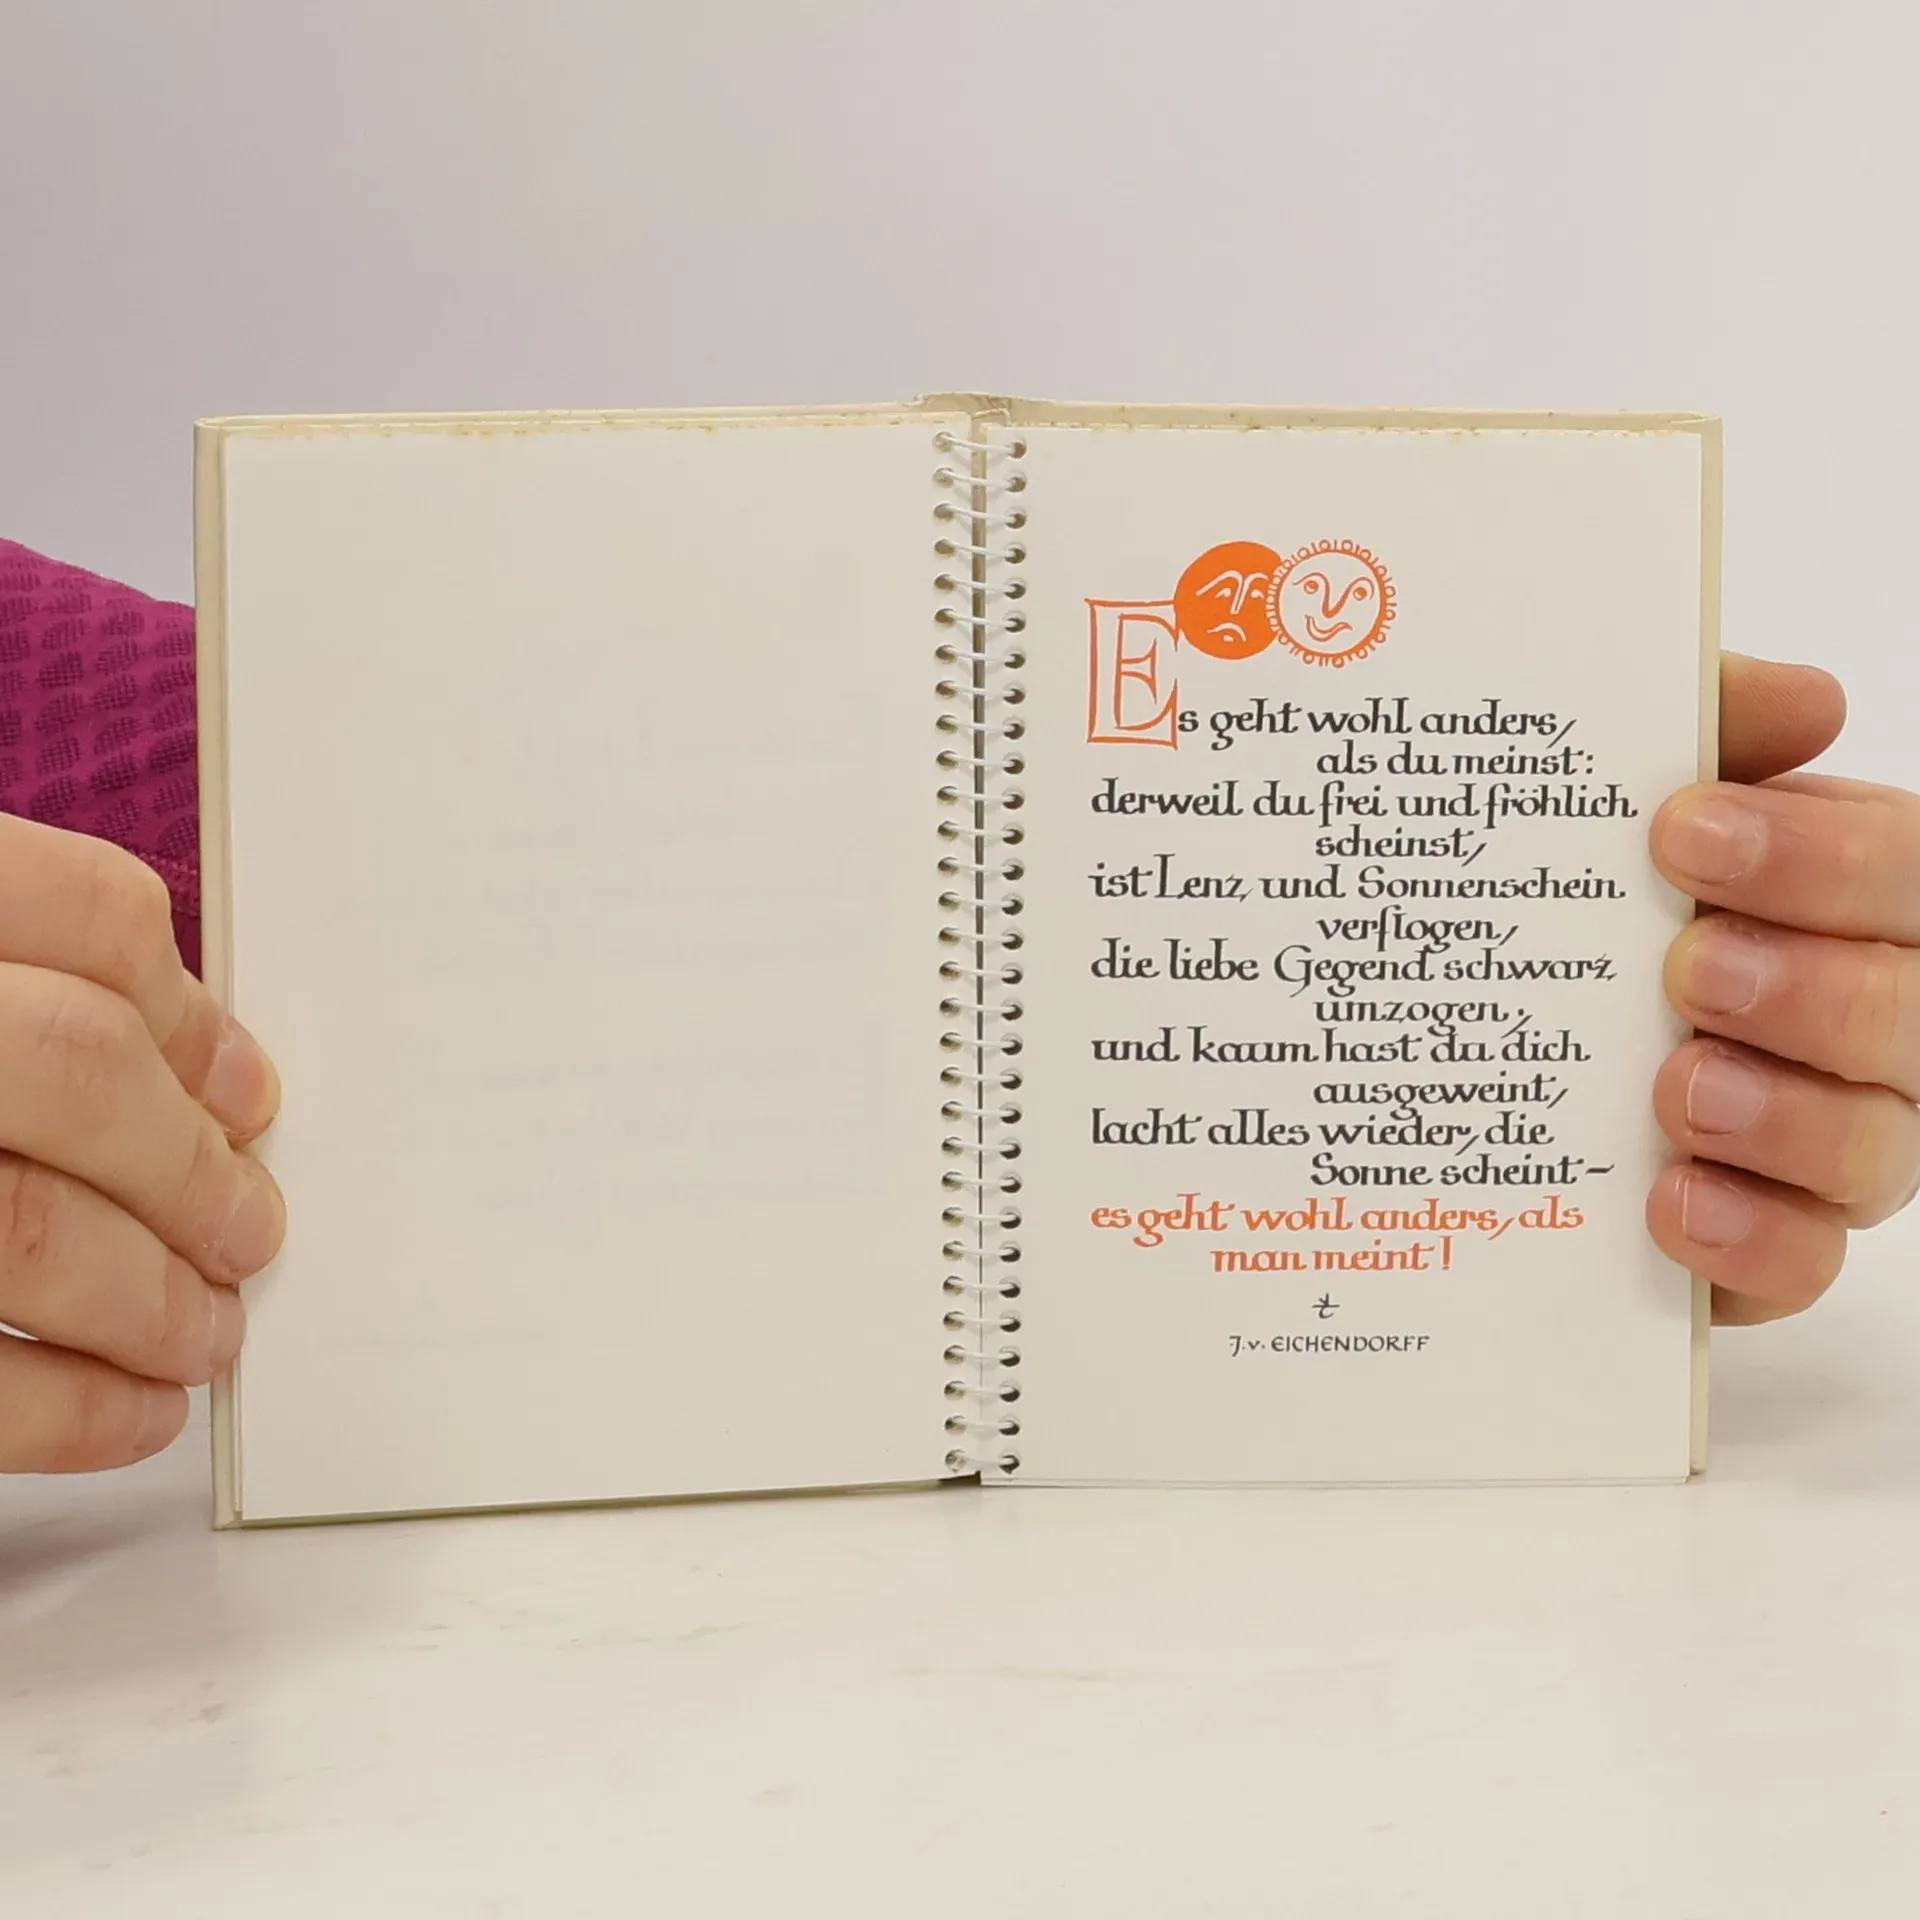 Es geht wohl anders,
als du meinst:
derweil du frei und fröhlich
scheinst,
ist Lenz und Sonnenschein
verflogen,
die liebe Gegend schwarz
umzogen;
und kaum hast du dich
ausgeweint,
lacht alles wieder, die
Sonne scheint –
es geht wohl anders, als
man meint!
J. v. EICHENDORFF